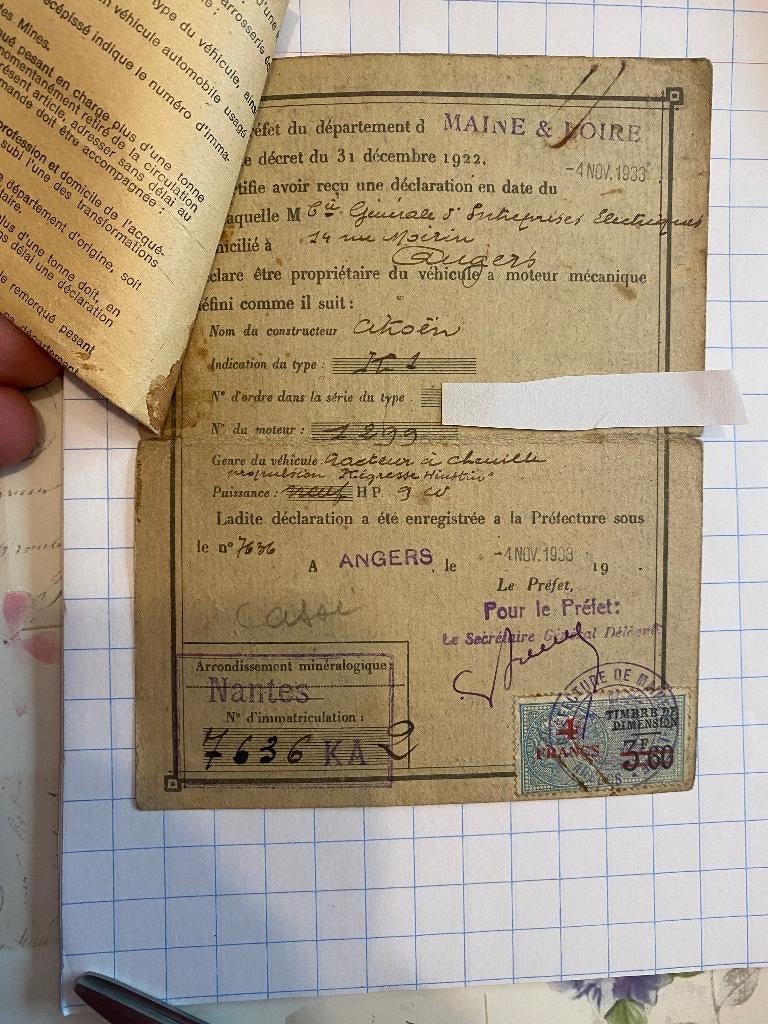 d'une
arrosserie
type du véhicule, ains
n véhicule automobile usagé
écépissé indique le numéro d'imma-
des Mines.
qué pesant en charge plus d'une tonne
momentanément retiré de la circulation
présent article, adresser sans délai au
mande doit être accompagnée :
profession et domicile de l'acqué-
subi l'une des transformations
département d'origine, soit
taire.
plus d'une tonne doit, en
délai une déclaration
remorqué pesant
département
éfet du département d MAINE & LOIRE
e décret du 31 décembre 1922,
-4 NOV. 1933
tifie avoir reçu une déclaration en date du
aquelle M Cie Générale d'Entreprises Electriques
micilié à 14 rue Moirin
Angers
clare être propriétaire du véhicule a moteur mécanique
éfini comme il suit :
Nom du constructeur Citroën
Indication du type :
N° d'ordre dans la série du type
N° du moteur : 1299
Genre du véhicule Tracteur à chenille
propulsion Kégresse Hinstin
Puissance : neuf HP. 9 cv
Ladite déclaration a été enregistrée a la Préfecture sous
le n° 7636
A ANGERS, le -4 NOV. 1933 19
Le Préfet,
Pour le Préfet:
Le Secrétaire Général Délégué
Cassé
Arrondissement minéralogique
Nantes
N° d'immatriculation :
7636 KA 2
4 FRANCS
TIMBRE DE DIMENSION
3.60